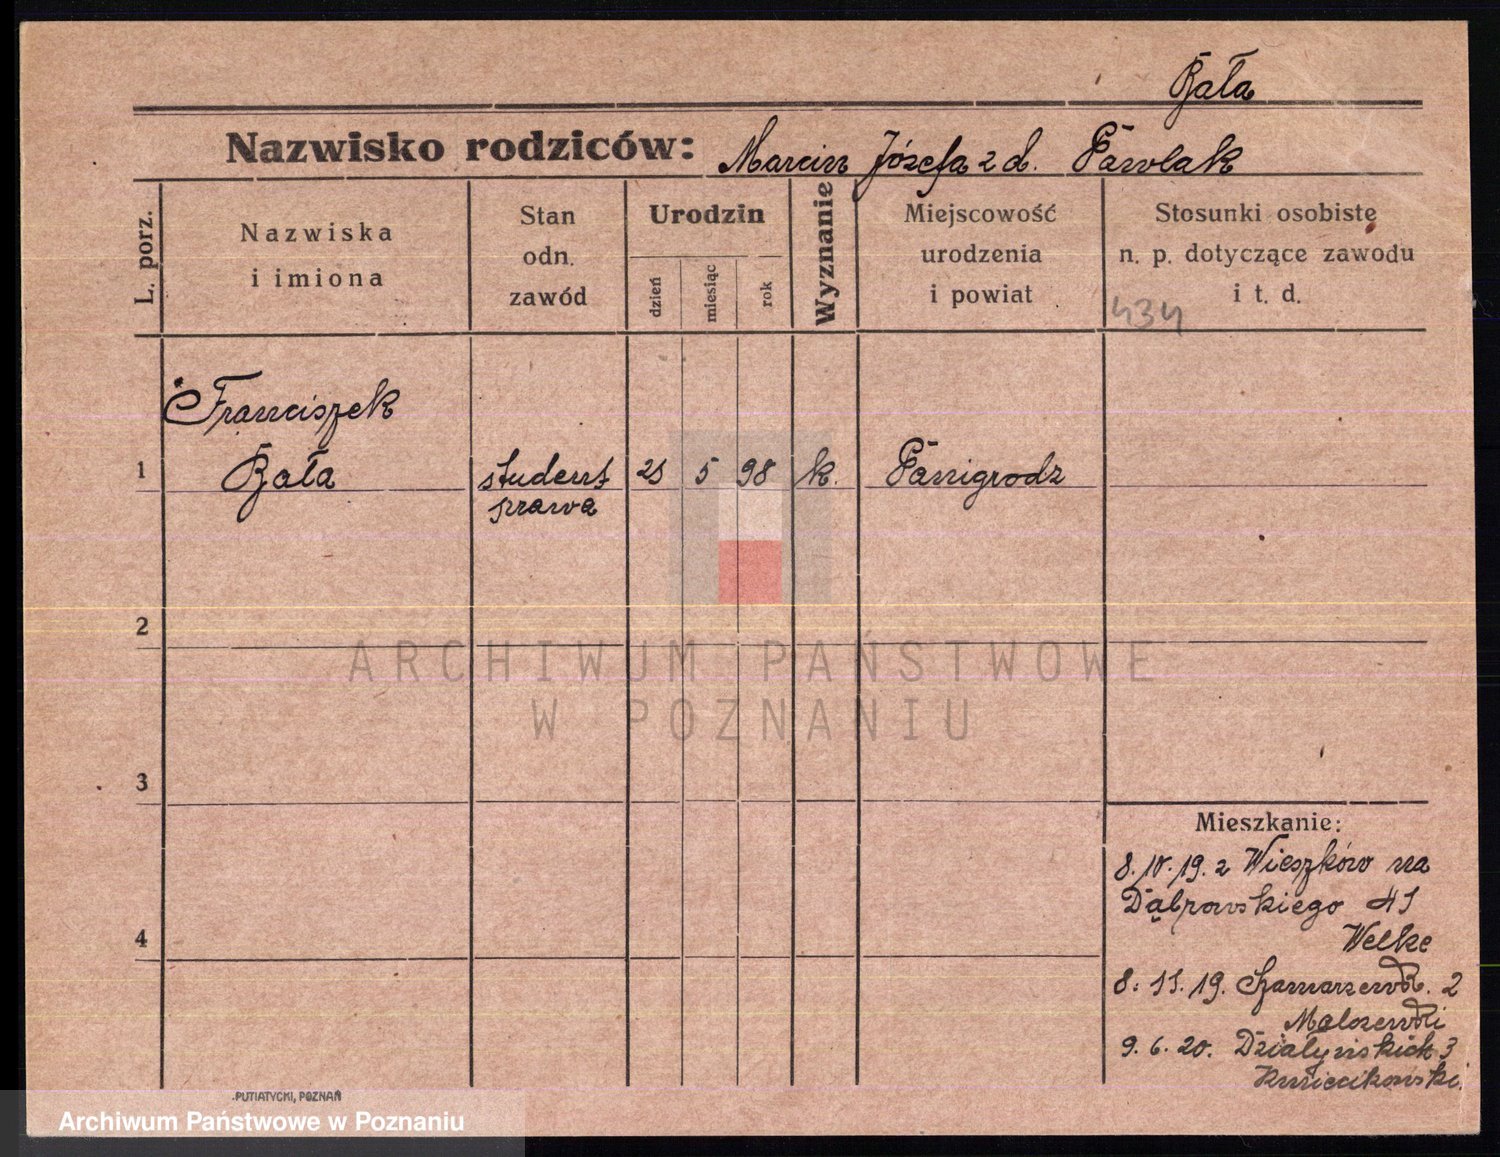 Bała
Nazwisko rodziców: Marcin Józefa z d. Pawlak
L. porz.
Nazwiska
i imiona
Stan
odn.
zawód
Urodzin
dzień
miesiąc
rok
Wyznanie
Miejscowość
urodzenia
i powiat
Stosunki osobiste
n. p. dotyczące zawodu
i t. d.
434
Franciszek
1 Bała student 5 98 k. Panigrodz
prawa
2
ARCHIWUM PAŃSTWOWE
W POZNANIU
3
Mieszkanie:
8.10.19. z Wieszków na
Dąbrowskiego 41
Welke
4
8. 11. 19. Szamarzewsk. 2
Malszewski
9. 6. 20. Działyńskich 3
PUTIATYCKI, POZNAŃ
Archiwum Państwowe w Poznaniu